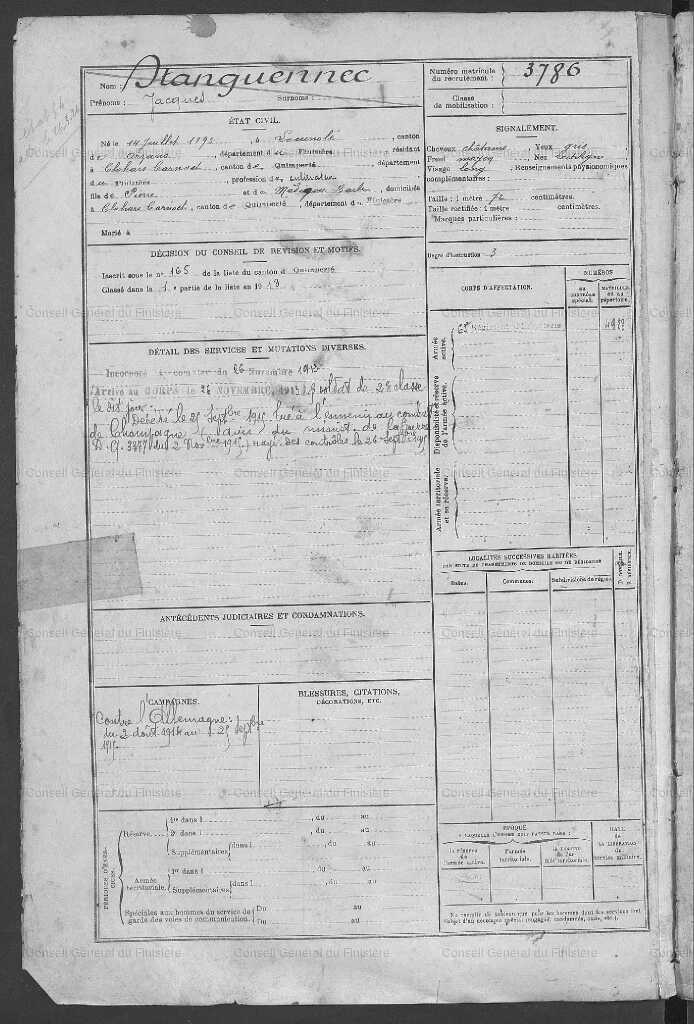 Nom : Stanguennec
Prénoms : Jacques Surnoms :
Numéro matricule du recrutement : 3786
Classe de mobilisation :
ÉTAT CIVIL.
Né le 14 Juillet 1893, à canton
de Arzano, département du Finistère, résidant
à Clohars Carnoët, canton de Quimperlé, département
du Finistère, profession de cultivateur
fils de Pierre et de domiciliés
à Clohars Carnoët, canton de Quimperlé, département du Finistère
Marié à
SIGNALEMENT.
Cheveux châtains Yeux gris
Front moyen Nez rectiligne
Visage long Renseignements physionomiques
complémentaires :
Taille : 1 mètre 72 centimètres.
Taille rectifiée : 1 mètre centimètres.
Marques particulières :
Degré d'instruction : 3
DÉCISION DU CONSEIL DE RÉVISION ET MOTIFS.
Inscrit sous le n° 165 de la liste du canton d Quimperlé
Classé dans la 1 e partie de la liste en 1913
DÉTAIL DES SERVICES ET MUTATIONS DIVERSES.
Incorporé à compter du 26 Novembre 1913
Arrivé au CORPS le 26 NOVEMBRE 1913 soldat de 2e classe
le dit jour
Décédé le 25 Septbre 1915 tué à l'ennemi au combat
de Champagne (avis du minist. de la guerre
du 2 Novbre 1915) rayé des contrôles le 26 Septbre 1915
CORPS D'AFFECTATION.
NUMÉROS
au contrôle spécial.
matricule ou au répertoire.
Armée active.
Disponibilité et réserve de l'armée active.
Armée territoriale et sa réserve.
LOCALITÉS SUCCESSIVES HABITÉES
PAR SUITE DE CHANGEMENTS DE DOMICILE OU DE RÉSIDENCE
Dates.
Communes.
Subdivisions de région.
ANTÉCÉDENTS JUDICIAIRES ET CONDAMNATIONS.
CAMPAGNES.
Contre l'Allemagne :
du 2 août 1914 au 25 Septbre
1915
BLESSURES, CITATIONS,
DÉCORATIONS, ETC.
PÉRIODES D'EXERCICES.
Réserve
1re dans l , du au
2e dans l , du au
Supplémentaires dans l , du au
, du au
Armée territoriale.
1re dans l , du au
Supplémentaires dans l , du au
, du au
Spéciales aux hommes du service de
garde des voies de communication.
Du au
Du au
ÉPOQUE
À LAQUELLE L'HOMME DOIT PASSER DANS :
la réserve de l'armée active.
l'armée territoriale.
la réserve de l'armée territoriale.
DATE
DE LA LIBÉRATION
du service militaire.
Conseil Général du Finistère